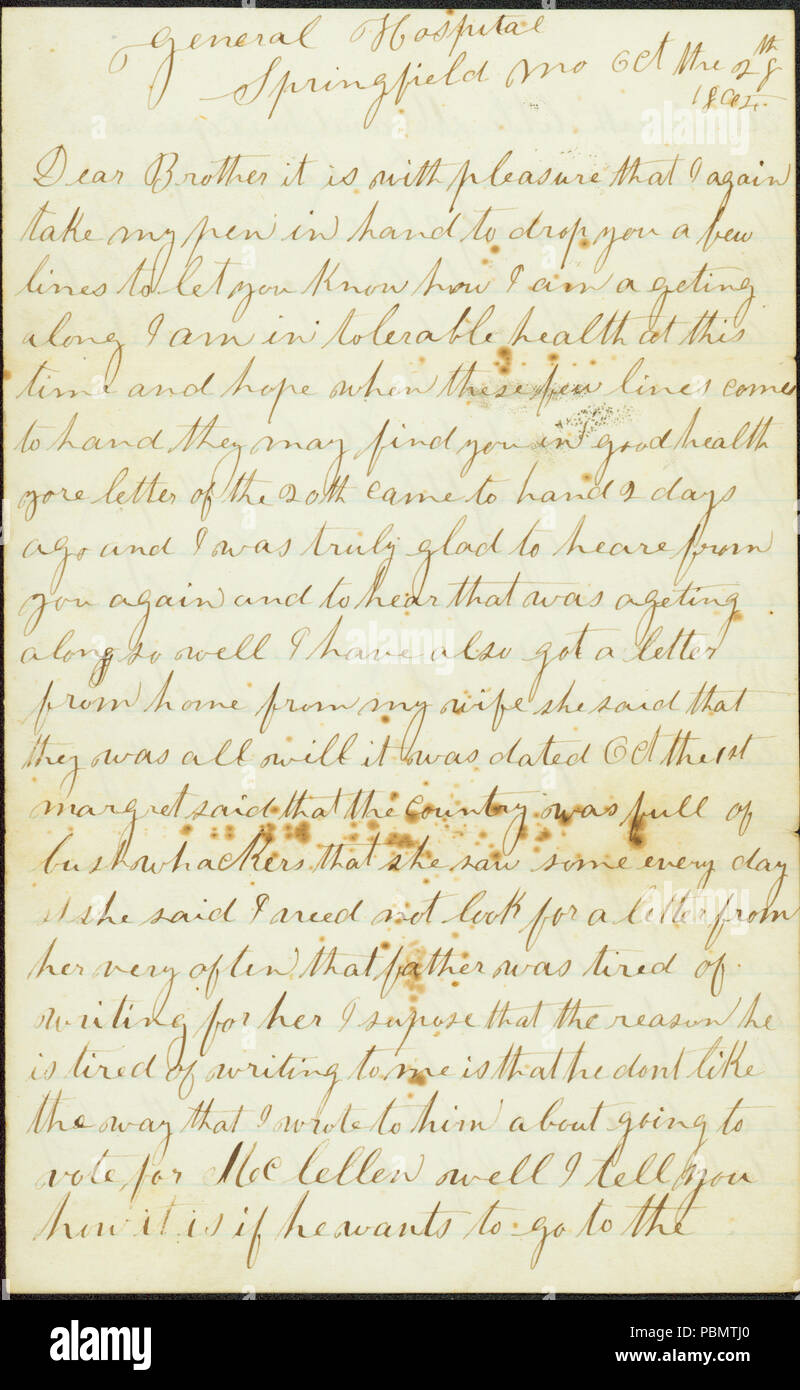 General Hospital
Springfield Mo Oct the 28th
1864
Dear Brother it is with pleasure that I again
take my pen in hand to drop you a few
lines to let you know how I am a geting
along I am in tolerable health at this
time and hope when these few lines comes
to hand they may find you in good health
yore letter of the 20th came to hand 2 days
ago and I was truly glad to heare from
you again and to hear that was a geting
along so well I have also got a letter
from home from my wife she said that
they was all will it was dated Oct the 1st
margret said that the country was full of
bushwhackers that she saw some every day
she said I need not look for a letter from
her very often that father was tired of
writing for her I supose that the reason he
is tired of writing to me is that he dont like
the way that I wrote to him about going to
vote for McClellen well I tell you
how it is if he wants to go to the
alamy
alamy stock photo
PBMTJ0
www.alamy.com